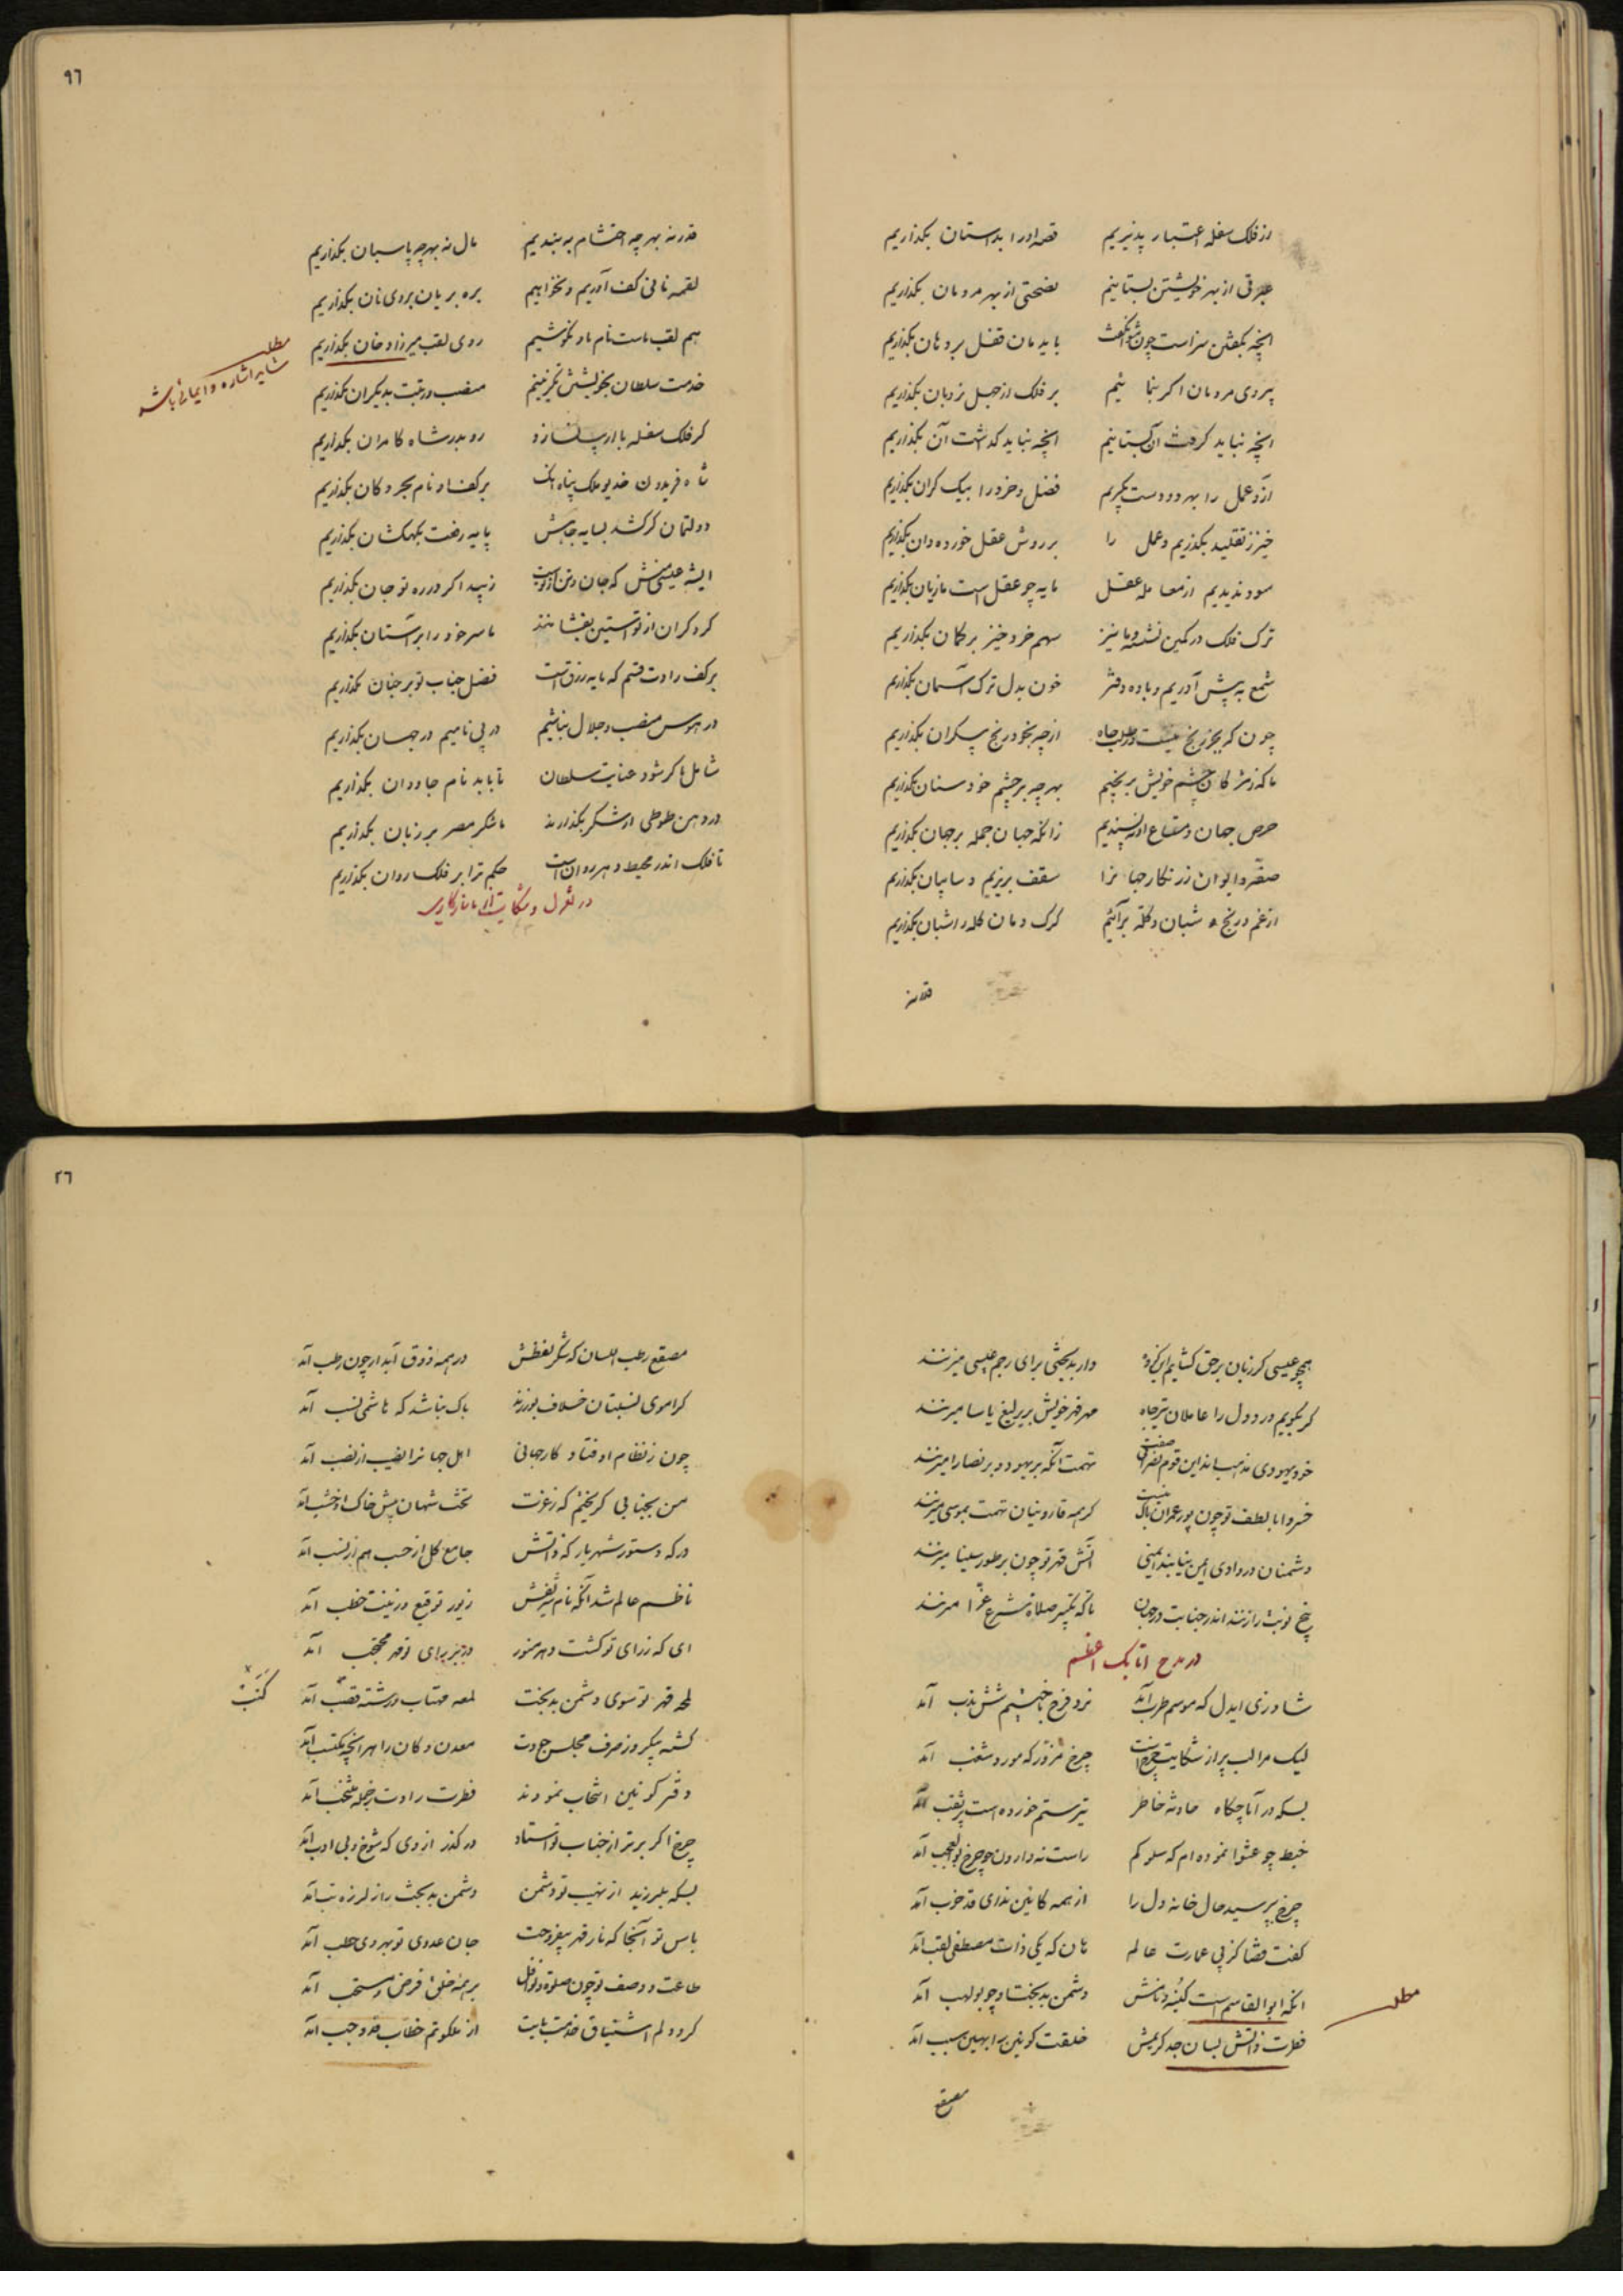 از فلک سفله اعتبار پذیریم قصه او را بداستان بگذاریم
عبرتی از بهر خویشتن بستانیم نصیحتی از بهر مردمان بگذاریم
انچه بگفتن سزاست چون نتوانگفت باید مان قفل بر دهان بگذاریم
پیروی مردمان اگر بنمائیم بر فلک از جهل نردبان بگذاریم
انچه نباید گرفت آن بستانیم انچه نباید گذاشت آن بگذاریم
آز و عمل را بهر دو دست بگیریم فضل و خرد را بیک کران بگذاریم
خیز ز تقلید بگذریم و عمل را بر روش عقل خورده دان بگذاریم
سود ندیدیم از معامله عقل مایه چو عقل است ما زیان بگذاریم
ترک فلک در کمین نشسته و ما نیز سهم خرد خیز بر کمان بگذاریم
شمع به پیش آوریم و باده و دفتر خون بدل ترک آسمان بگذاریم
چون گریز رنج نیست در طلب جاه از چه بخود رنج بیکران بگذاریم
ما که ز مژگان چشم خویش برنجیم بهر چه بر چشم خود سنان بگذاریم
حرص جهان و متاع او نپسندیم زانکه جهان جمله بر جهان بگذاریم
صفه و ایوان زرنگار جهانرا سقف بریزیم و سایبان بگذاریم
از غم و رنج شبان و گله برآئیم گرگ دمان گله را شبان بگذاریم
قدر نه
٩٦
قدر نه بهر چه احتشام به بندیم مال نه بهر چه پاسبان بگذاریم
لقمه نانی بکف آوریم و نخواهیم بره بریان بروی نان بگذاریم
هم لقب ماست نام ما و نکوشیم روی لقب میرزا و خان بگذاریم
مطلب
شاید اشاره و ایمائی باشد
خدمت سلطان بخویشتن بگزینیم منصب و رتبت بدیگران بگذاریم
گر فلک سفله با ما رو بدر شاه کامران بگذاریم
شاه فریدون خدیو ملک پناه انک بر کف او نام بحر و کان بگذاریم
دولتمان گر کشد بسایه جاهش پایه رفعت بکهکشان بگذاریم
ایشه عیسی منش که جان و تن از تست زیبد اگر در ره تو جان بگذاریم
گر دگران از تو آستین بفشانند ما سر خود را بر آستان بگذاریم
بر کف رادت قسم که مایه رزق است فضل جناب تو بر جنان بگذاریم
در هوس منصب و جلال نباشیم در پی نامیم در جهان بگذاریم
شامل ما گر شود عنایت سلطان تا بابد نام جاودان بگذاریم
در دهن طوطی ار شکر بگذارند ما شکر مصر بر زبان بگذاریم
تا فلک اندر محیط دهر روان است حکم ترا بر فلک روان بگذاریم
در تغزل و شکایت از ناسازگاری
همچو عیسی گر زبان بر حق گشایم دار بدبختی برای رجم عیسی میزنند
گر بگویم درد دل را عاملان تیرجاه مهر قهر خویش بر یرلیغ یاسا میزنند
خود یهودی مذهب اند این قوم نصرانی صفت تهمت آنگه بر یهود و بر نصارا میزنند
خسروا با لطف تو چون پور عمران باک نیست گر همه قارونیان تهمت بموسی میزنند
دشمنان در وادی ایمن نیابند ایمنی آتش قهر تو چون بر طور سینا میزنند
پنج نوبت را زنند اندر جنابت در جهان تا که تکبیر صلاة شرع غرا میزنند
در مدح اتابک اعظم
شاد زی ایدل که موسم طرب آمد
لیک مرا لب پر از شکایت چرخ است چرخ مزور که مورد شغب آمد
بسکه در آماجگاه حادثه خاطر تیر ستم خورده است پر ثقب آمد
خبط چو عشوا نموده ام که سلوکم راست نه وارون چو چرخ بوالعجب آمد
چرخ بپرسید حال خانه دل را از همه کائین ندای قد خرب آمد
گفت قضا کز پی عمارت عالم هان که یکی ذات مصطفی لقب آمد
انکه ابوالقاسم است کنیه و نامش دشمن بدبخت او چو بولهب آمد
مطلب
فطرت ذاتش بسان جد کریمش خلقت کونین را بهین سبب آمد
مصقع
٢٦
مصقع رطب اللسان که شکر لفظش در همه ذوق آبدار چون رطب آمد
گر اموی نسبتان خلاف بورزند باک نباشد که هاشمی نسب آمد
چون ز نظام اوفتاد کار جهانی اهل جهانرا نصیب از نصب آمد
من بجنابی گریختم که ز عزت تخت شهان پیش خاک او خشب آمد
درگه دستور شهریار که ذاتش جامع کل از حسب هم از نسب آمد
ناظم عالم شد آنکه نام شریفش زیور توقیع و زینت خطب آمد
ای که ز رای تو گشت دهر منور
لمحه قهر تو سوی دشمن بدبخت لمعه مهتاب و رشته قصب آمد
کتب
گشته بیکروز صرف مجلس جودت معدن و کان را هر انچه مکتسب آمد
دفتر کونین انتخاب نمودند فطرت رادت ز جمله منتخب آمد
چرخ اگر برتر از جناب تو استاد در گذر از وی که شوخ و بی ادب آمد
بسکه بلرزید از نهیب تو دشمن دشمن بدبخت را ز لرزه تب آمد
باس تو آنجا که نار قهر بیفروخت جان عدوی تو بهر وی حطب آمد
طاعت و وصف تو چون صلوة و نوافل بر همه خلق فرض و مستحب آمد
کرد دلم اشتیاق خدمت بابت از ملکوتم خطاب قد وجب آمد